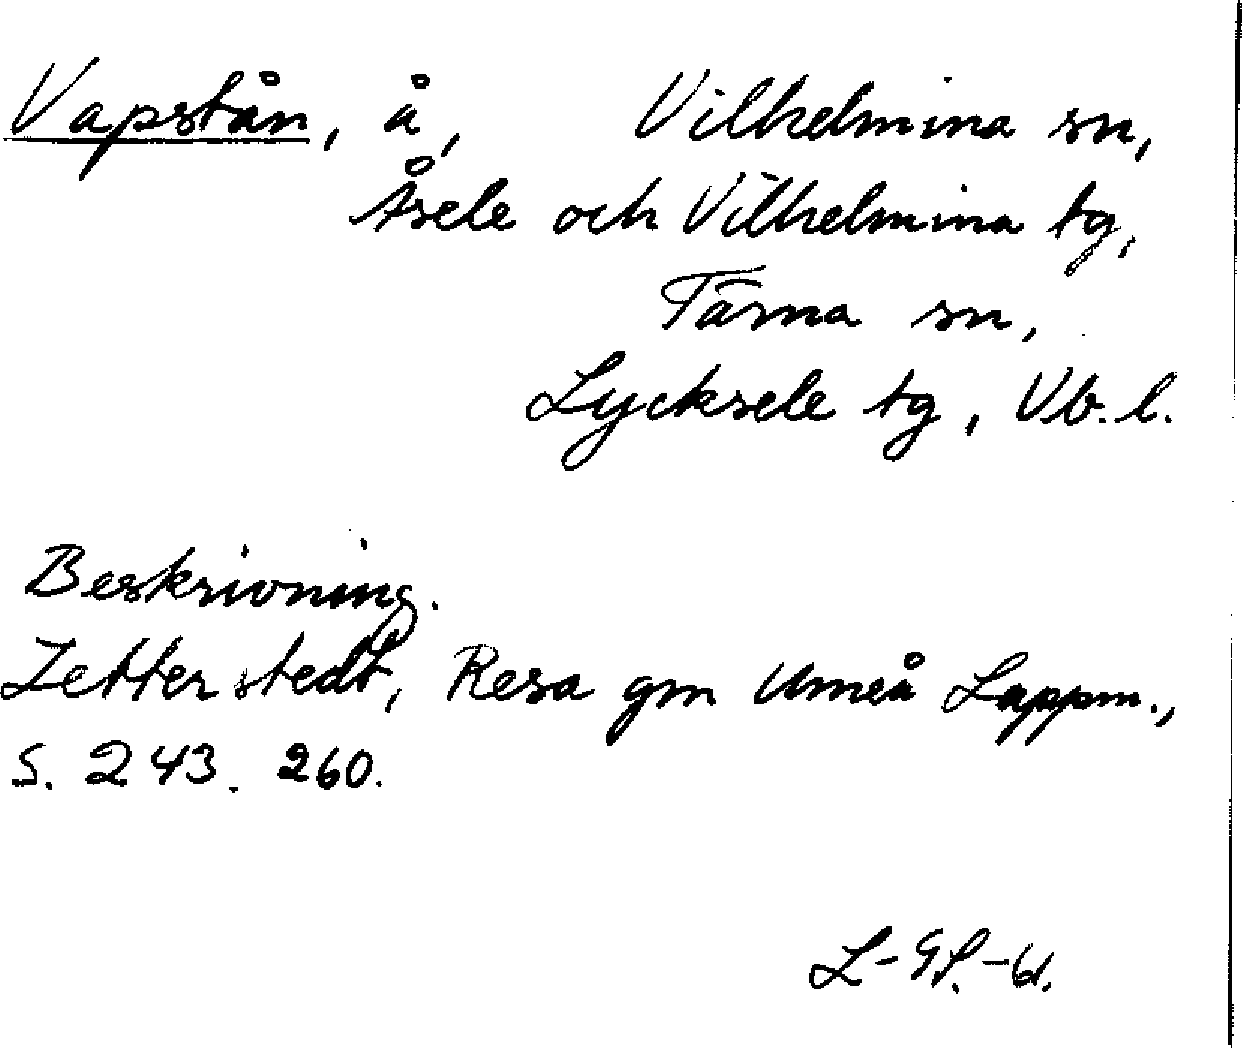 Vapstån, å, Vilhelmina sn,
Åsele och Vilhelmina tg,
Tärna sn,
Lycksele tg, Vb. l.
Beskrivning.
Zetterstedt, Resa gm Umeå Lappm.,
S. 243. 260.